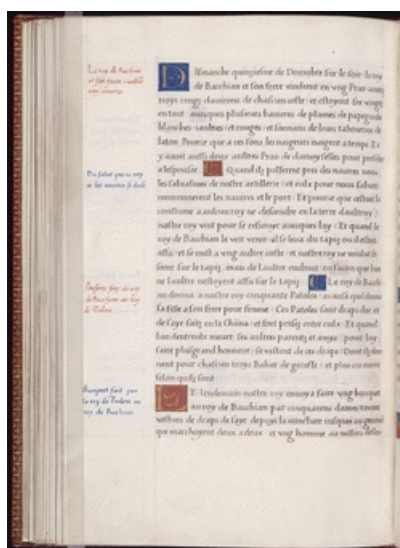 Le roy de Bacchian
et son frere
Du salut que ce roy
Present fait du roy
de Bacchian au roy
de Tidore
Banquet fait par
le roy de Tidore au
roy de Bacchian
Dimanche quinziesme de Decembre sur le soir le roy
de Bacchian et son frere vindrent en vng Prao auec
troys rengz dauirons de chascun coste et estoyent six vingtz
en tout auecques plusieurs banieres de plumes de papegault
blanches iaulnes et rouges et sonnans de leurs tabourins de
laton Pource que a ces sons les naigeurs naigent a temps Et
y auoit aussi deux aultres Prao de damoyselles pour
a lespousee Quand ilz passerent pres des nauires nous
les saluasmes de nostre artillerie et eulx pour nous saluer
enuironnerent les nauires et le port Et pource que cestoit la
coustume a aulcun roy ne descendre en la terre daultruy
nostre roy vint pour se resiouyr auecques luy Et quand le
roy de Bacchian le veit venir il se leua du tapis ou il estoit
assis et se mist a vng aultre coste et nostre roy ne voulut se
seoir sur le tapis mais de laultre endroit en facon que lun
ne laultre nestoyent assis sur le tapis Le roy de Bacchi
an donna a nostre roy cinquante Patoles quil donna
sa fille a son frere pour femme Ces Patoles sont draps dor et
de soye faitz en la Chiina et fort prisez entre eulx Et quand
lun dentreulx meurt ses aultres parentz et amys pour luy
faire plusgrand honneur se vestent de ces draps
nent pour chascun troys Bahar de giroffle et plus ou moins
selon quilz sont
Le lendemain nostre roy enuoya a faire vng banquet
au roy de Bacchian par cinquante dames toutes
vestues de draps de soye depuys la ceincture iusques au genoul
qui marchoyent deux a deux et vng homme au millieu delles